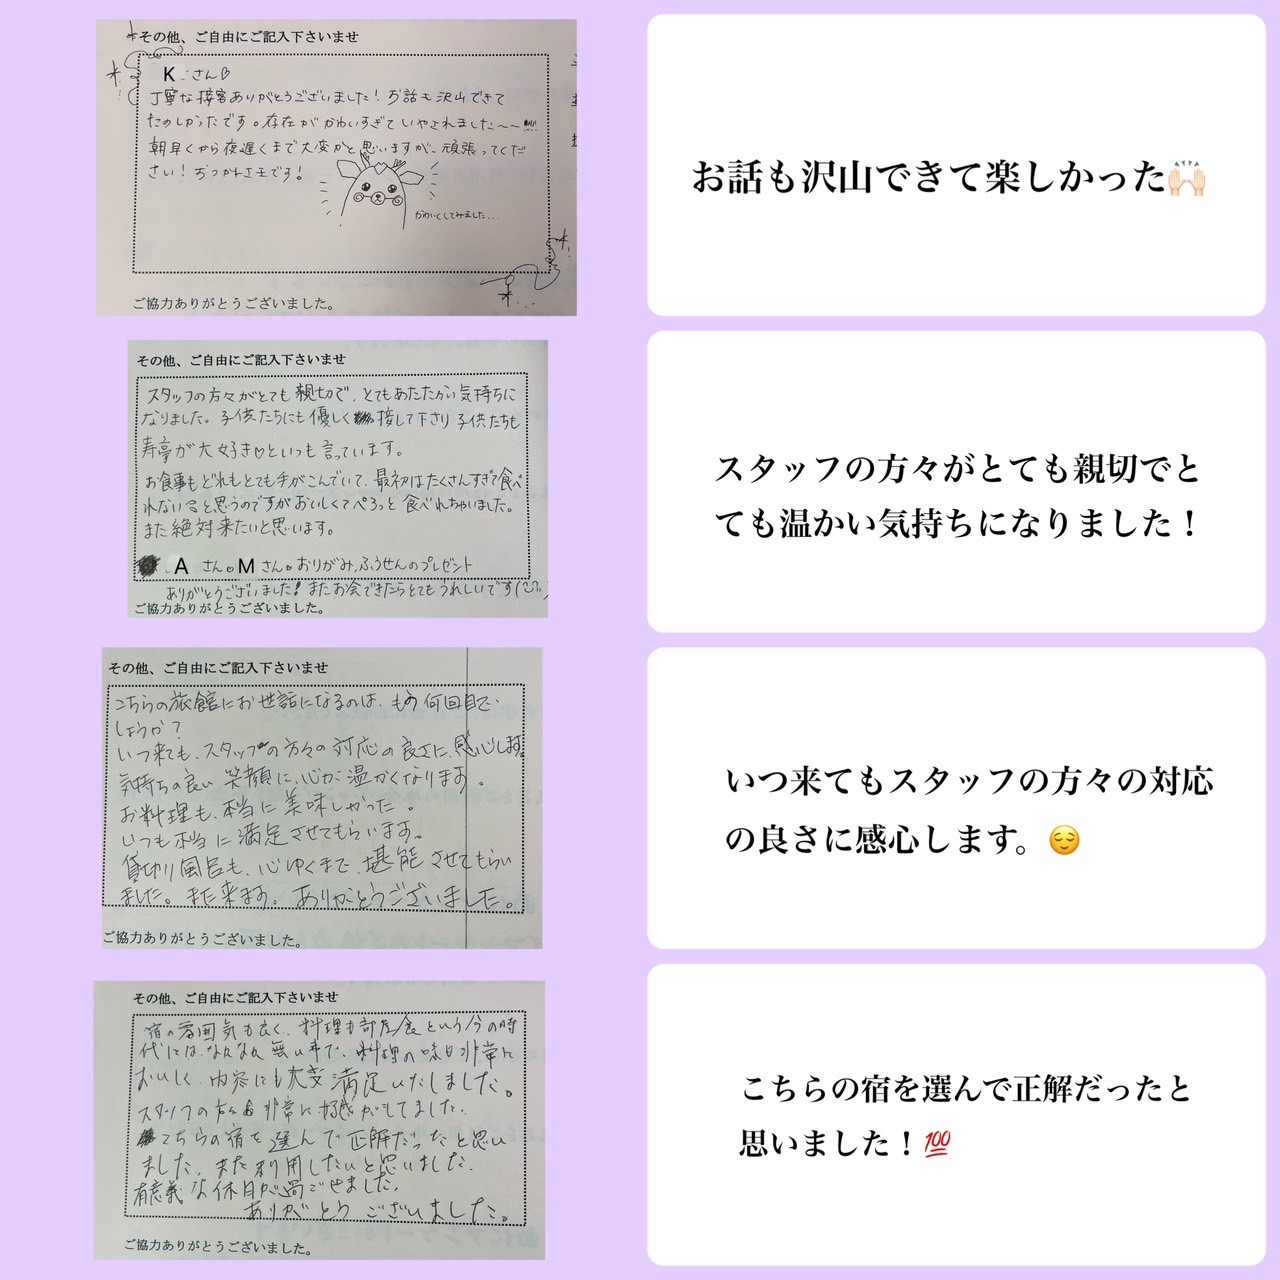 その他、ご自由にご記入下さいませ
K さん♡
丁寧な接客ありがとうございました！お話も沢山できて
たのしかったです。存在がかわいすぎていやされました〜〜
朝早くから夜遅くまで大変かと思いますが、頑張ってくだ
さい！おつかれさまです！
かわいくしてみました...
ご協力ありがとうございました。
お話も沢山できて楽しかった🙌🏻
その他、ご自由にご記入下さいませ
スタッフの方々がとても親切で、とてもあたたかい気持ちに
なりました。子供たちにも優しく接して下さり子供たちも
寿亭が大好き♡といつも言っています。
お食事もどれもとても手がこんでいて、最初はたくさんすぎて食べ
れないなと思うのですがおいしくてぺろっと食べれちゃいました。
また絶対来たいと思います。
A さん。M さん。おりがみ、ふうせんのプレゼント
ありがとうございました！またお会できたらとてもうれしいです
ご協力ありがとうございました。
スタッフの方々がとても親切でと
ても温かい気持ちになりました！
その他、ご自由にご記入下さいませ
こちらの旅館にお世話になるのは、もう何回目で
しょうか？
いつ来ても、スタッフの方々の対応の良さに、感心します。
気持ちの良い笑顔に、心が温かくなります。
お料理も、本当に美味しかった。
いつも本当に満足させてもらいます。
貸切り風呂も、心ゆくまで、堪能させてもらい
ました。また来ます。ありがとうございました。
ご協力ありがとうございました。
いつ来てもスタッフの方々の対応
の良さに感心します。😌
その他、ご自由にご記入下さいませ
宿の雰囲気も良く、料理も部屋食という今の時
代にはなかなか無い事で、料理の味も非常に
おいしく、内容にも大変満足いたしました。
スタッフの方々も非常に好感がもてました。
こちらの宿を選んで正解だったと思い
ました。また利用したいと思いました。
有意義な休日が過ごせました。
ありがとうございました。
ご協力ありがとうございました。
こちらの宿を選んで正解だったと
思いました！💯